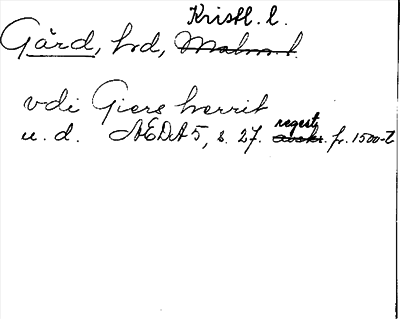 Kristl. l.
Gård, hd, Malm. l.
vdi Giers herrit
u. d. AEDA 5, s. 27. regest avskr. fr. 1500-t